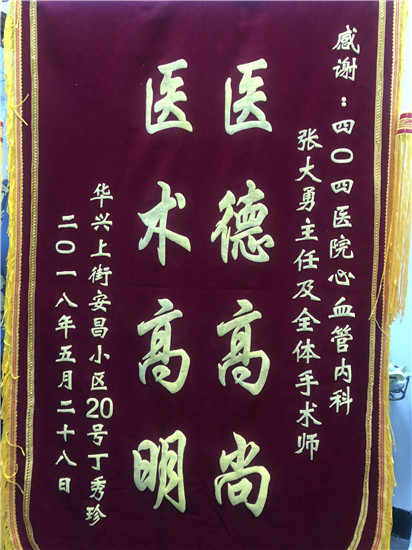 感谢：四〇四医院心血管内科
张大勇主任及全体手术师
医德高尚
医术高明
华兴上街安昌小区20号丁秀珍
二〇一八年五月二十八日